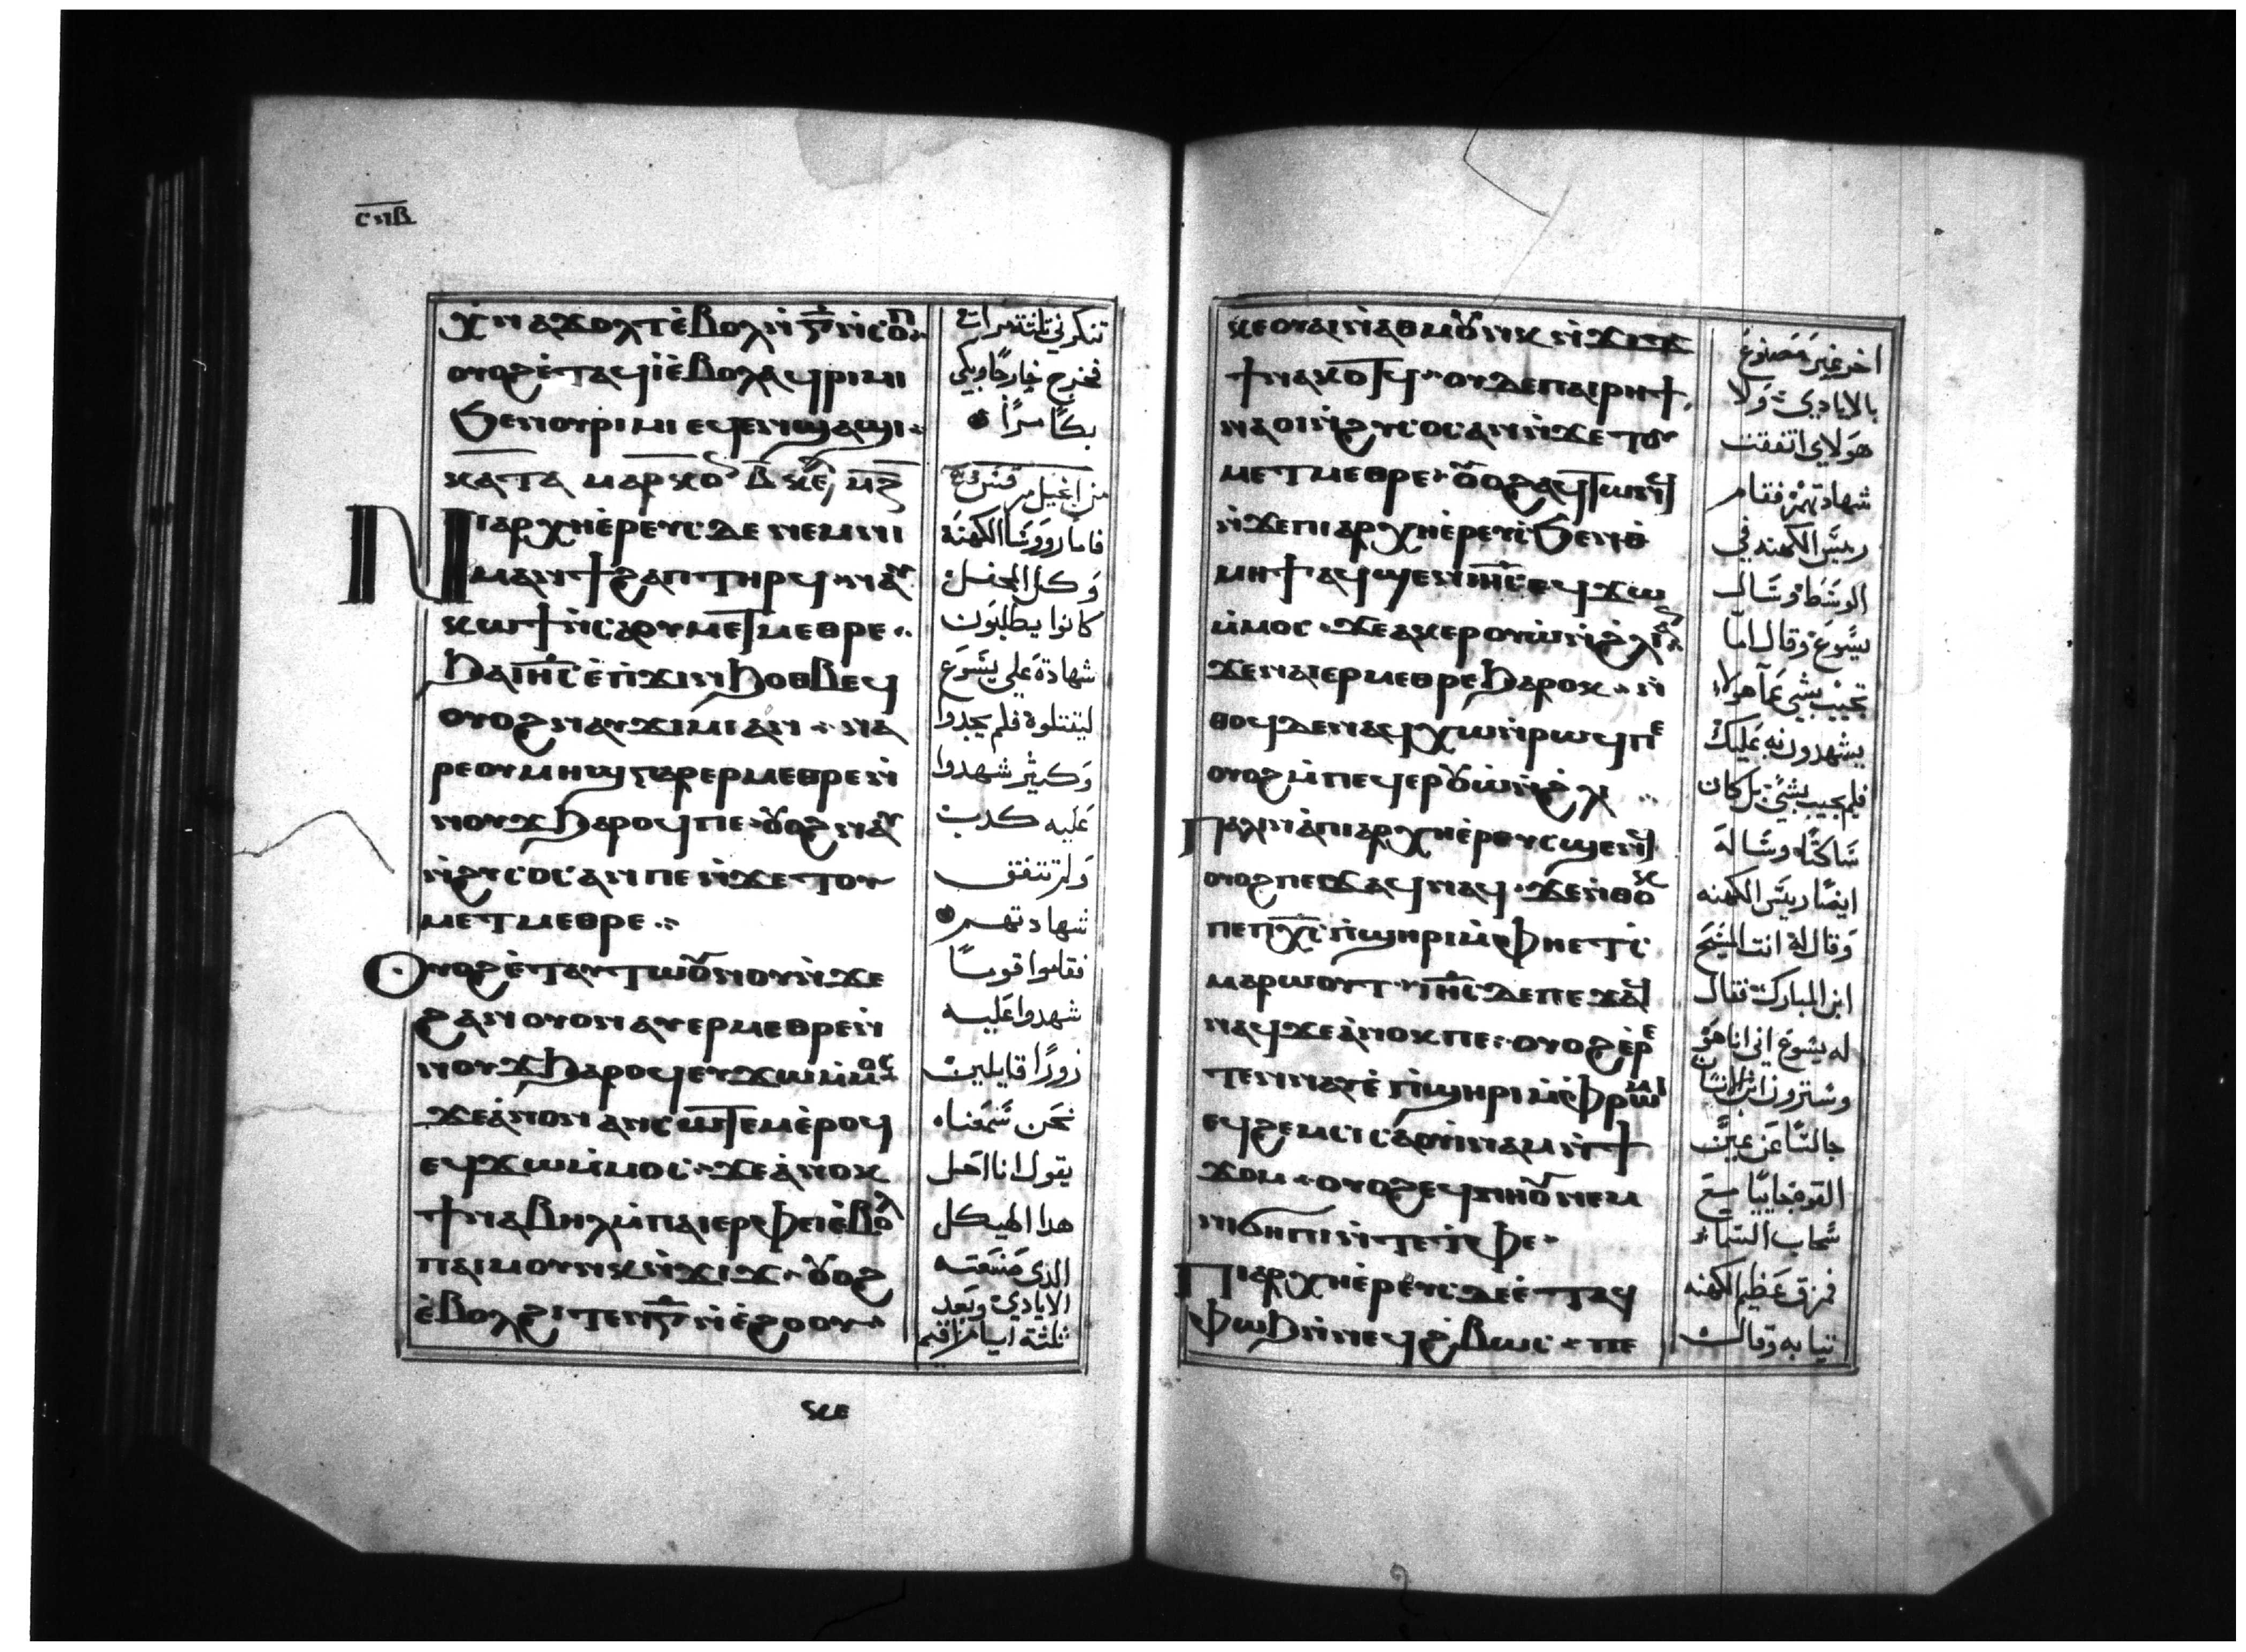 ⲥⲡⲃ
ⲭⲛⲁϫⲟⲗⲧ ⲉ̀ⲃⲟⲗ ⲛ̅ⲅ̅ ⲛ̀ⲥⲟⲡ
ⲟⲩⲟϩ ⲉ̀ⲧⲁϥⲓ̀ ⲉ̀ⲃⲟⲗ ⲁϥⲣⲓⲙⲓ
ϧⲉⲛ ⲟⲩⲣⲓⲙⲓ ⲉϥⲉⲛϣⲁϣⲓ
ⲕⲁⲧⲁ ⲙⲁⲣⲕⲟⲥ
ⲛⲓⲁⲣⲭⲏⲉ̀ⲣⲉⲩⲥ ⲇⲉ ⲛⲉⲙ ⲡⲓ
ⲙⲁⲛϯϩⲁⲡ ⲧⲏⲣϥ ⲛⲁⲩ
ⲕⲱϯ ⲛ̀ⲥⲁ ⲟⲩⲙⲉⲧⲙⲉⲑⲣⲉ
ϧⲁ ⲓⲏ̅ⲥ̅ ⲉ̀ⲡ̀ϫⲓⲛϧⲟⲑⲃⲉϥ
ⲟⲩⲟϩ ⲛⲁⲩϫⲓⲙⲓ ⲁⲛ ⲛⲁ
ⲣⲉ ⲟⲩⲙⲏϣ ⲅⲁⲣ ⲉⲣⲙⲉⲑⲣⲉ ⲛ̀
ⲛⲟⲩϫ ϧⲁⲣⲟϥ ⲡⲉ ⲟⲩⲟϩ ⲛⲁⲩ
ⲛ̀ϩⲩⲥⲟⲥ ⲁⲛ ⲡⲉ ⲛ̀ϫⲉ ⲧⲟⲩ
ⲙⲉⲧⲙⲉⲑⲣⲉ
ⲟⲩⲟϩ ⲉ̀ⲧⲁⲩⲧⲱⲟⲩⲛⲟⲩ ⲛ̀ϫⲉ
ϩⲁⲛⲟⲩⲟⲛ ⲁⲩⲉⲣⲙⲉⲑⲣⲉ ⲛ̀
ⲛⲟⲩϫ ϧⲁⲣⲟϥ ⲉⲩϫⲱ ⲙ̀ⲙⲟⲥ
ϫⲉ ⲁ̀ⲛⲟⲛ ⲁⲛⲥⲱⲧⲉⲙ ⲉ̀ⲣⲟϥ
ⲉϥϫⲱ ⲙ̀ⲙⲟⲥ ϫⲉ ⲁ̀ⲛⲟⲕ
ϯⲛⲁⲃⲏⲗ ⲙ̀ⲡⲁⲓⲉⲣⲫⲉⲓ ⲉ̀ⲃⲟⲗ
ⲡⲁⲓⲙⲟⲩⲛⲕ ⲛ̀ϫⲓϫ ⲟⲩⲟϩ
ⲉ̀ⲃⲟⲗϩⲓⲧⲉⲛ ⲅ̅ ⲛ̀ⲉ̀ϩⲟⲟⲩ
ⲕⲉ
تنكرني ثلثة مرات
فخرج خارجًا وبكى
بكًا مرًا
من انجيل مرقس
فاما روَوسَا الكهنَة
وَكل المحفل
كانوا يطلبَون
شهادة عَلي يسَوع
ليقتلوة فلم يجدوا
وَكثير شهدوا
عَليه كدب
وَلم تتفق
شهادتهم
فقاموا قومًا
شهدوا عَليه
زورًا قايلين
نحَن سَمعَناه
يقول انا احَل
هدا الهيكل
الذي صَنعَته
الايادي وبَعد
ثلثة ايام اقيم
ⲕⲉⲟⲩⲁⲓ ⲛ̀ⲁⲑⲙⲟⲩⲛⲕ ⲛ̀ϫⲓϫ
ϯⲛⲁⲕⲟⲧϥ ⲟⲩⲇⲉ ⲡⲁⲓⲣⲏϯ
ⲛⲁⲟⲓ ⲛ̀ϩⲩⲥⲟⲥ ⲁⲛ ⲛ̀ϫⲉ ⲧⲟⲩ
ⲙⲉⲧⲙⲉⲑⲣⲉ ⲟⲩⲟϩ ⲁϥⲧⲱⲛϥ
ⲛ̀ϫⲉ ⲡⲓⲁⲣⲭⲏⲉ̀ⲣⲉⲩⲥ ϧⲉⲛ ⲑ
ⲙⲏϯ ⲁϥϣⲉⲛ ⲓⲏ̅ⲥ̅ ⲉϥϫⲱ
ⲙ̀ⲙⲟⲥ ϫⲉ ⲁⲕⲉⲣⲟⲩⲱ̀ ⲛ̀ϩ̀ⲗⲓ ⲁⲛ
ϫⲉ ⲛⲁⲓ ⲉⲣⲙⲉⲑⲣⲉ ϧⲁⲣⲟⲕ ⲛ̀
ⲑⲟϥ ⲇⲉ ⲛⲁϥⲭⲱ ⲛ̀ⲣⲱϥ ⲡⲉ
ⲟⲩⲟϩ ⲙ̀ⲡⲉϥⲉⲣⲟⲩⲱ̀ ⲛ̀ϩ̀ⲗⲓ
ⲡⲁⲗⲓⲛ ⲁ̀ ⲡⲓⲁⲣⲭⲏⲉ̀ⲣⲉⲩⲥ ϣⲉⲛϥ
ⲟⲩⲟϩ ⲡⲉϫⲁϥ ⲛⲁϥ ϫⲉ ⲛ̀ⲑⲟⲕ
ⲡⲉ ⲡⲭ̅ⲥ̅ ⲡ̀ϣⲏⲣⲓ ⲙ̀ⲫⲏⲉⲧⲥ̀
ⲙⲁⲣⲱⲟⲩⲧ ⲓⲏ̅ⲥ̅ ⲇⲉ ⲡⲉϫⲁϥ
ⲛⲁϥ ϫⲉ ⲁ̀ⲛⲟⲕ ⲡⲉ ⲟⲩⲟϩ ⲉ̀ⲣⲉ
ⲧⲉⲛⲛⲁⲩ ⲉ̀ ⲡ̀ϣⲏⲣⲓ ⲙ̀ⲫ̀ⲣⲱⲙⲓ
ⲉϥϩⲉⲙⲥⲓ ⲥⲁⲟⲩⲓ̀ⲛⲁⲙ ⲛ̀ϯ
ϫⲟⲙ ⲟⲩⲟϩ ⲉϥⲛⲏⲟⲩ ⲛⲉⲙ
ⲛⲓϭⲏⲡⲓ ⲛ̀ⲧⲉ ⲧ̀ⲫⲉ
ⲡⲓⲁⲣⲭⲏⲉ̀ⲣⲉⲩⲥ ⲇⲉ ⲉ̀ⲧⲁϥ
ⲫⲱϧ ⲛ̀ⲛⲉϥϩ̀ⲃⲱⲥ ⲡⲉ
اخر غير مَصنوع
بالايادي وَلا
هَولاي اتفقت
شهادتهم فقام
رييَس الكهنه في
الوسَط وسَال
يسَوع وقال اما
تجيب بشي عَما هولاء
يشهدون به عَليك
فلم يجيب بشي بل كان
سَاكتًا وسَاله
ايضًا رييَس الكهنه
وَقال له انت المسَيح
ابن المبارك فقال
له يسَوع اني انا هَو
وسَترون ابن الانسَان
جالسًا عَن يمين
القوة جاييًا مع
سَحاب السَماء
فمزق عَظيم الكهنه
ثيابه وقال